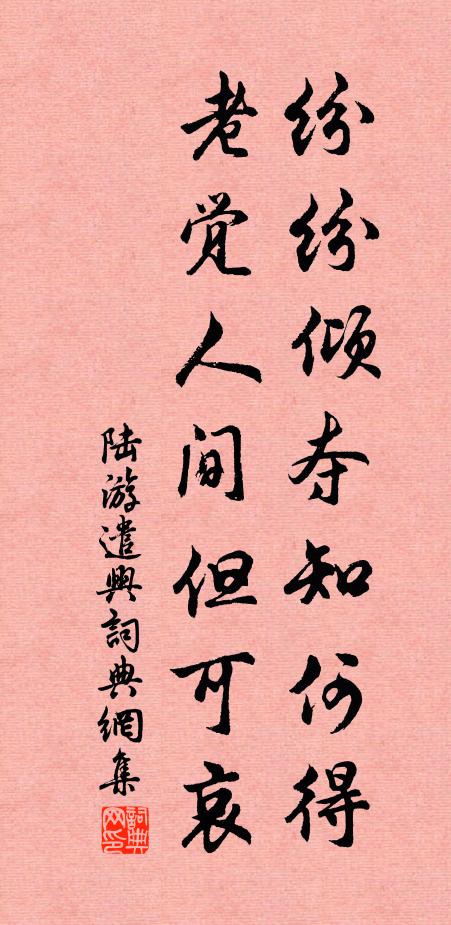 纷纷倾夺知何得
老觉人间但可哀
陆游遣興詞典網集
詞典网印